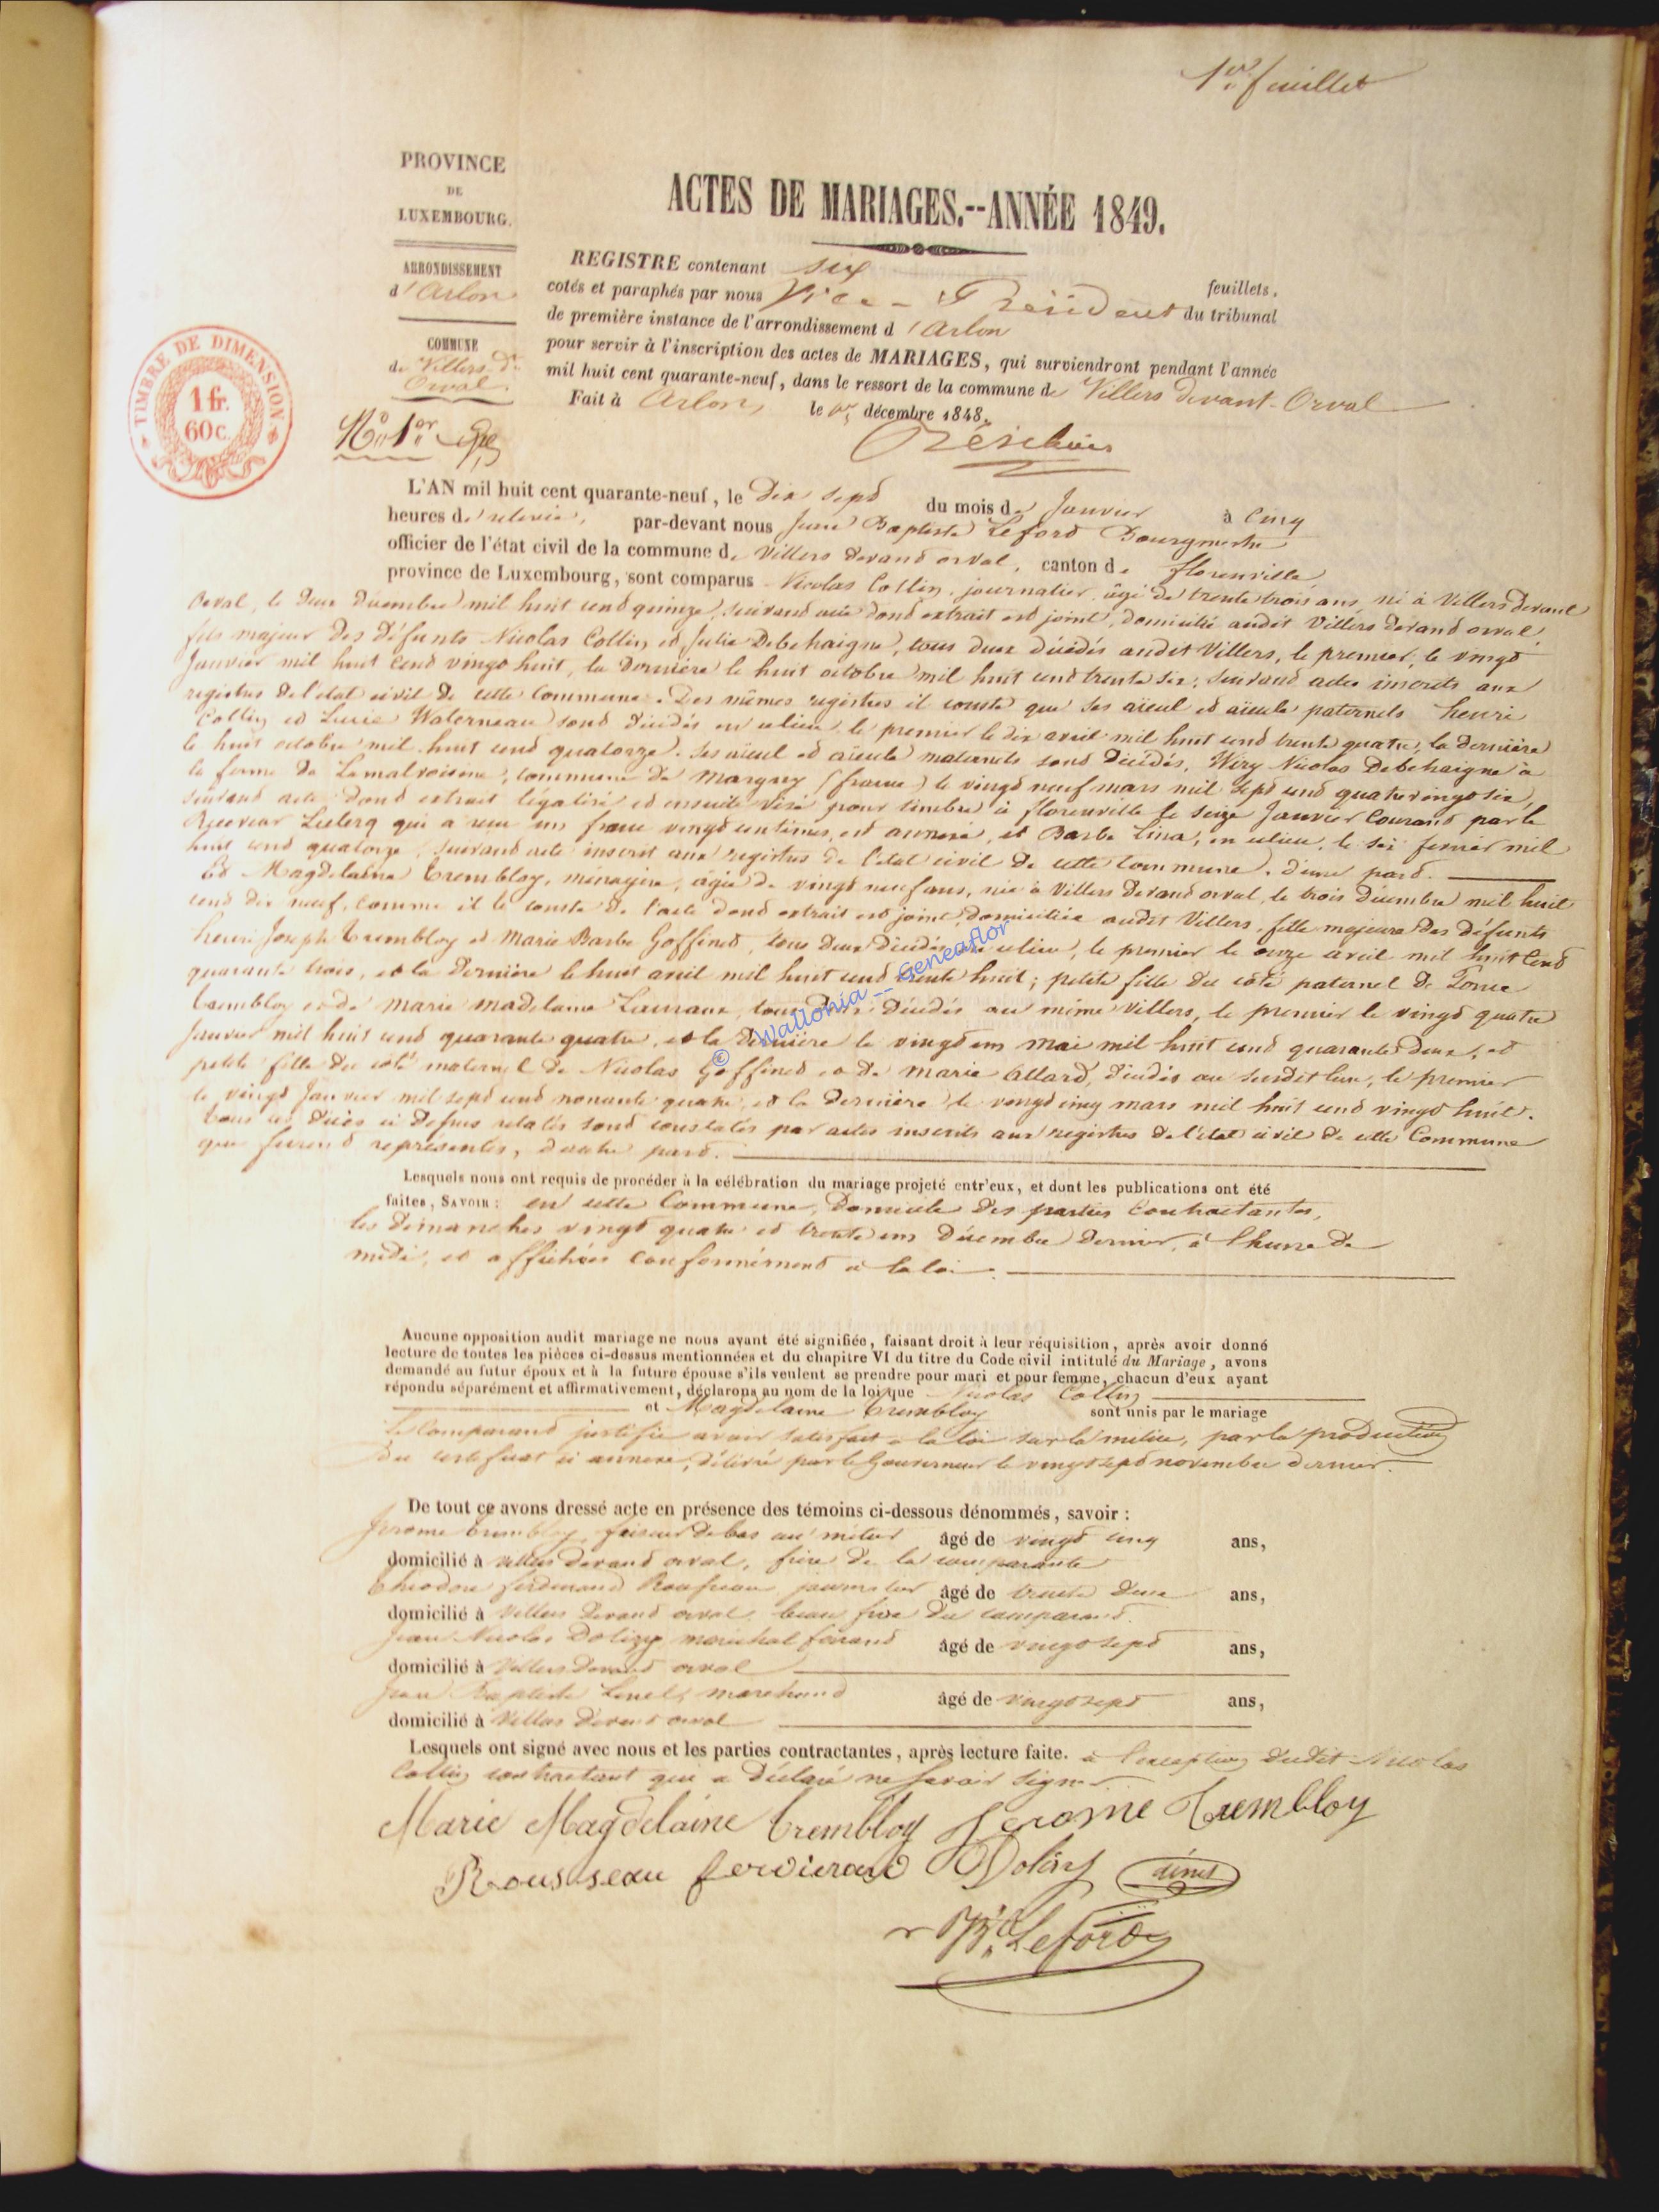 1er feuillet
PROVINCE
DE
LUXEMBOURG.
ARRONDISSEMENT
d'Arlon
COMMUNE
de Villers dt
Orval.
TIMBRE DE DIMENSION
1 fr.
60 c.
ACTES DE MARIAGES.--ANNÉE 1849.
REGISTRE contenant six feuillets,
cotés et paraphés par nous Vice-Président du tribunal
de première instance de l'arrondissement d'Arlon
pour servir à l'inscription des actes de MARIAGES, qui surviendront pendant l'année
mil huit cent quarante-neuf, dans le ressort de la commune de Villers devant-Orval
Fait à Arlon, le 1er décembre 1848.
No 1er
L'AN mil huit cent quarante-neuf, le dix sept du mois de Janvier à cinq
heures de relevée, par-devant nous Jean Baptiste Leford Bourgmestre
officier de l'état civil de la commune de Villers devand orval, canton de florenville,
province de Luxembourg, sont comparus Nicolas Collin, journalier, âgé de trente trois ans, né à Villers devant
Orval, le deux décembre mil huit cend quinze, suivand acte dond extrait est joint, domicilié audit Villers devand orval,
fils majeur des défunts Nicolas Collin et Julie Debehaigne, tous deux décédés audit Villers, le premier, le vingt
Janvier mil huit cend vingt huit, la dernière le huit octobre mil huit cend trente six, suivand actes inscrits aux
registres de l'état civil de cette commune. Des mêmes registres il conste que ses aïeul et aïeule paternels henri
Collin et Lucie Waterneau sond décédés en ce lieu, le premier le dix avril mil huit cend trente quatre, la dernière
le huit octobre mil huit cend quatorze. Ses aïeul et aïeule maternels sond décédés, Wiry Nicolas Debehaigne à
la ferme de Lamalvoisine, commune de Margny (france) le vingt neuf mars mil sept cend quatrevingt six,
suivand acte dond extrait légalisé et ensuite visé pour timbre à florenville le seize Janvier courand par le
Receveur Leclerq qui a reçu un franc vingt centimes, est annexé, et Barbe Lina, en ce lieu, le six fevrier mil
huit cend quatorze, suivand acte inscrit aux registres de l'état civil de cette commune. d'une part.
Et Magdelaine Trembloy, ménagère, âgée de vingt neuf ans, née à Villers devand orval, le trois décembre mil huit
cend dix neuf, comme il le conste de l'acte dond extrait est joint, domiciliée audit Villers, fille majeure des défunts
henri Joseph Trembloy et Marie Barbe Goffined, tous deux décédés en ce lieu, le premier le onze avril mil huit cend
quarante trois, et la dernière le huit avril mil huit cend trente huit; petite fille du côté paternel de
Trembloy et de Marie Madelaine, tous deux décédés au même Villers, le premier le vingt quatre
Janvier mil huit cend quarante quatre, et la dernière le vingt un mai mil huit cend quarante deux, et
petite fille du coté maternel de Nicolas Goffined et de Marie Allard, décédés au susdit lieu, le premier
le vingt Janvier mil sept cend nonante quatre, et la dernière le vingt cinq mars mil huit cend vingt huit.
Tous ces décès ci dessus relatés sond constatés par actes inscrits aux registres de l'état civil de cette Commune
que furend représentés, d'autre part.
© Wallonia -- Geneaflor
Lesquels nous ont requis de procéder à la célébration du mariage projeté entr'eux, et dont les publications ont été
faites, SAVOIR: en cette Commune, domicile des parties contractantes,
les dimanches vingt quatre et trente un décembre dernier, à l'heure de
midi, et affichées conformémend à la loi.
Aucune opposition audit mariage ne nous ayant été signifiée, faisant droit à leur réquisition, après avoir donné
lecture de toutes les pièces ci-dessus mentionnées et du chapitre VI du titre du Code civil intitulé du Mariage, avons
demandé au futur époux et à la future épouse s'ils veulent se prendre pour mari et pour femme, chacun d'eux ayant
répondu séparément et affirmativement, déclarons au nom de la loi que Nicolas Collin
et Magdelaine Trembloy sont unis par le mariage
Le Comparand justifie avoir satisfait à la loi sur la milice, par la production
du certificat ci annexé, délivré par le Gouverneur le vingt sept novembre dernier.
De tout ce avons dressé acte en présence des témoins ci-dessous dénommés, savoir :
Jerome Trembloy, faiseur de bas au métier âgé de vingt cinq ans,
domicilié à Villers devand orval, frère de la comparante
Théodore ferdinand Rousseau, journalier âgé de trente deux ans,
domicilié à Villers devand orval, beau frère du comparand.
Jean Nicolas Dolizy, maréchal ferrand âgé de vingt sept ans,
domicilié à Villers devand orval
Jean Baptiste, marchand âgé de vingt sept ans,
domicilié à Villers devand orval
Lesquels ont signé avec nous et les parties contractantes, après lecture faite. à l'exception dudit Nicolas
Collin contractant qui a déclaré ne savoir signer.
Marie Magdelaine Trembloy Jerome Trembloy
Rousseau ferdinand Dolizy
JBte Leford